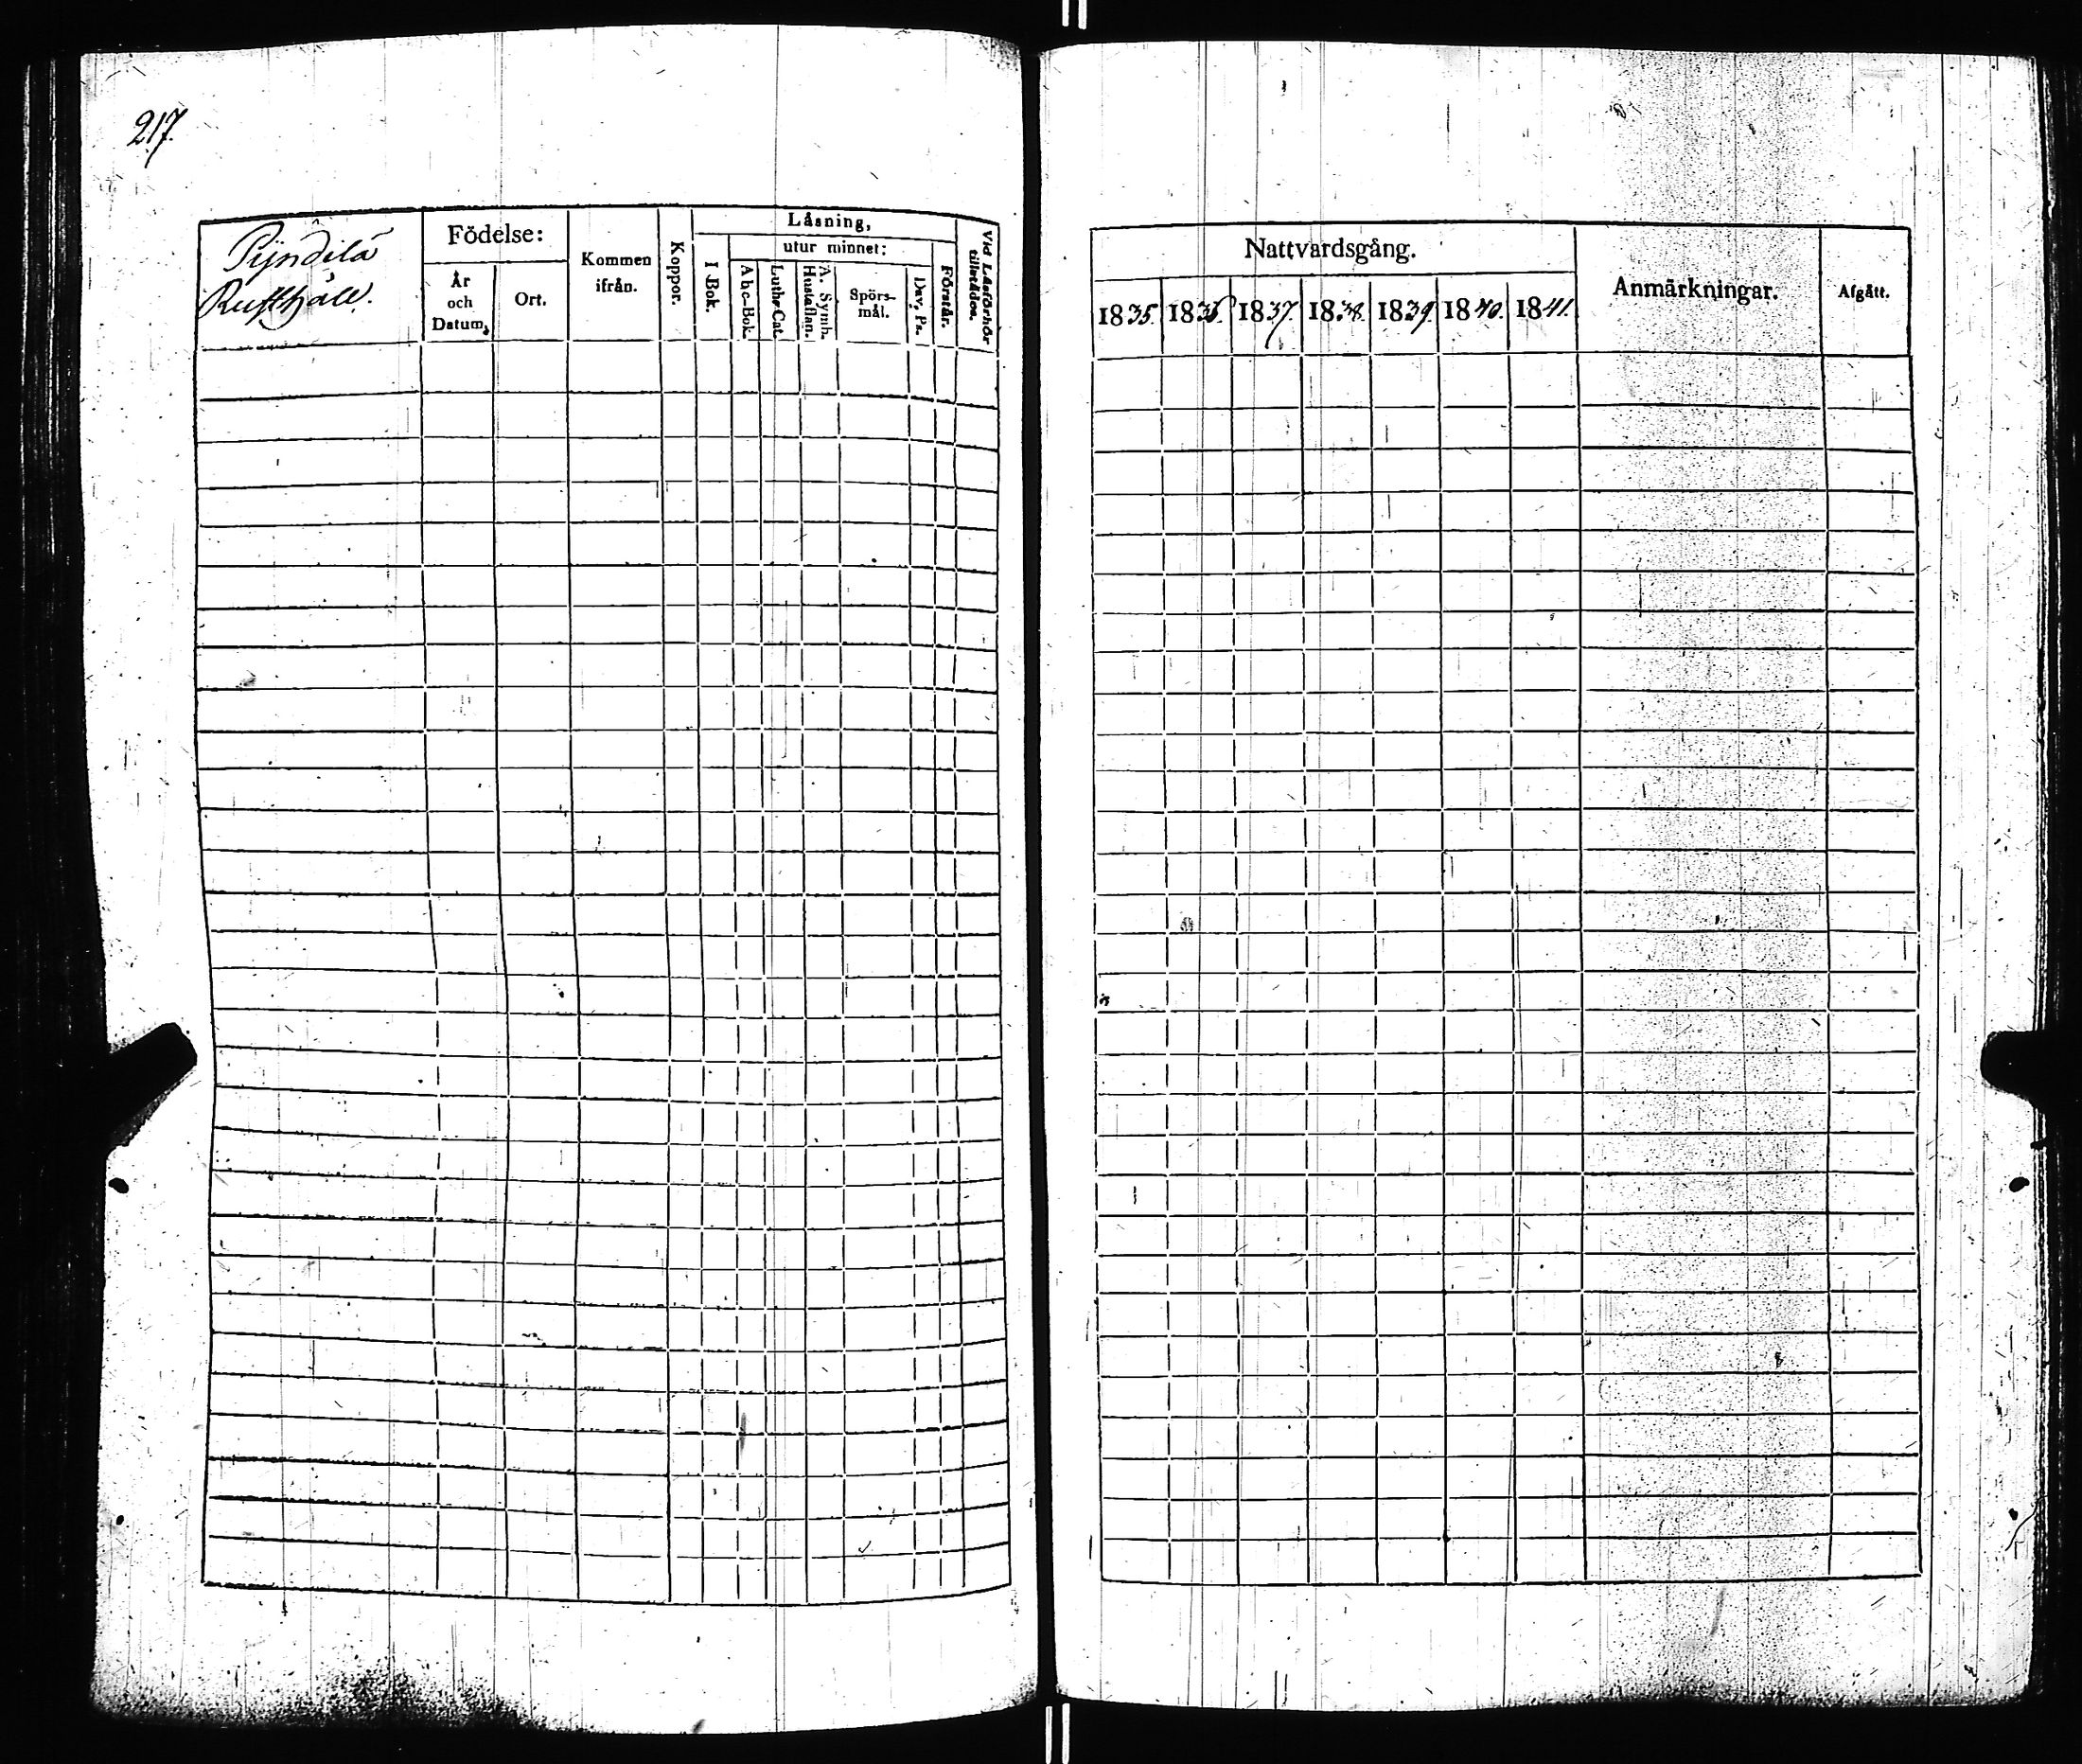 217.
Pyndilä
Rusthåll.
Födelse:
År
och
Datum.
Ort.
Kommen
ifrån.
Koppor.
Läsning,
I Bok.
utur minnet:
A b c-Bok.
Luth. Cat.
Hustaflan.
A. Symb.
Spörs-
mål.
Dav. Ps.
Förstår.
Vid Läsförhör
tillstädes.
Nattvardsgång.
1835. 1836 1837. 1838. 1839. 1840. 1841.
Anmärkningar.
Afgått.